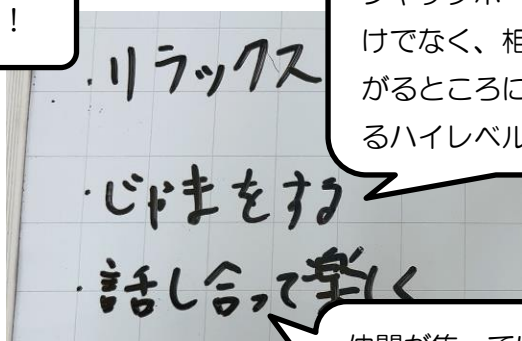 ！
けでなく、相
がるところに
るハイレベル
・リラックス
・じゃまをする
・話し合って楽しく